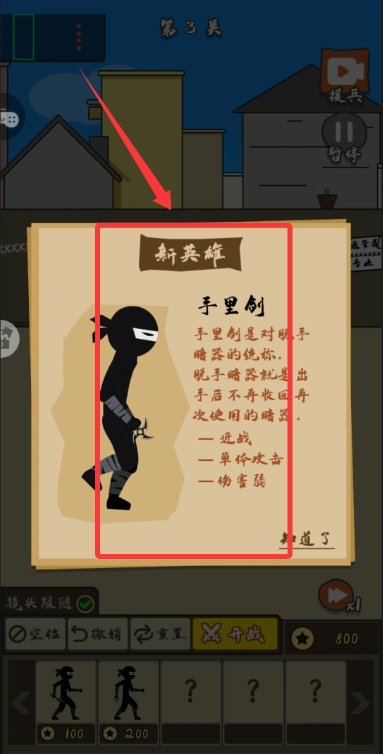 第 3 关
援兵
暂停
新英雄
手里剑
手里剑是对脱手
暗器的统称.
脱手暗器就是出
手后不再收回再
次使用的暗器.
— 近战
— 单体攻击
— 伤害弱
知道了
镜头跟随
x1
空位
撤销
重置
开战
800
100
200
?
?
?